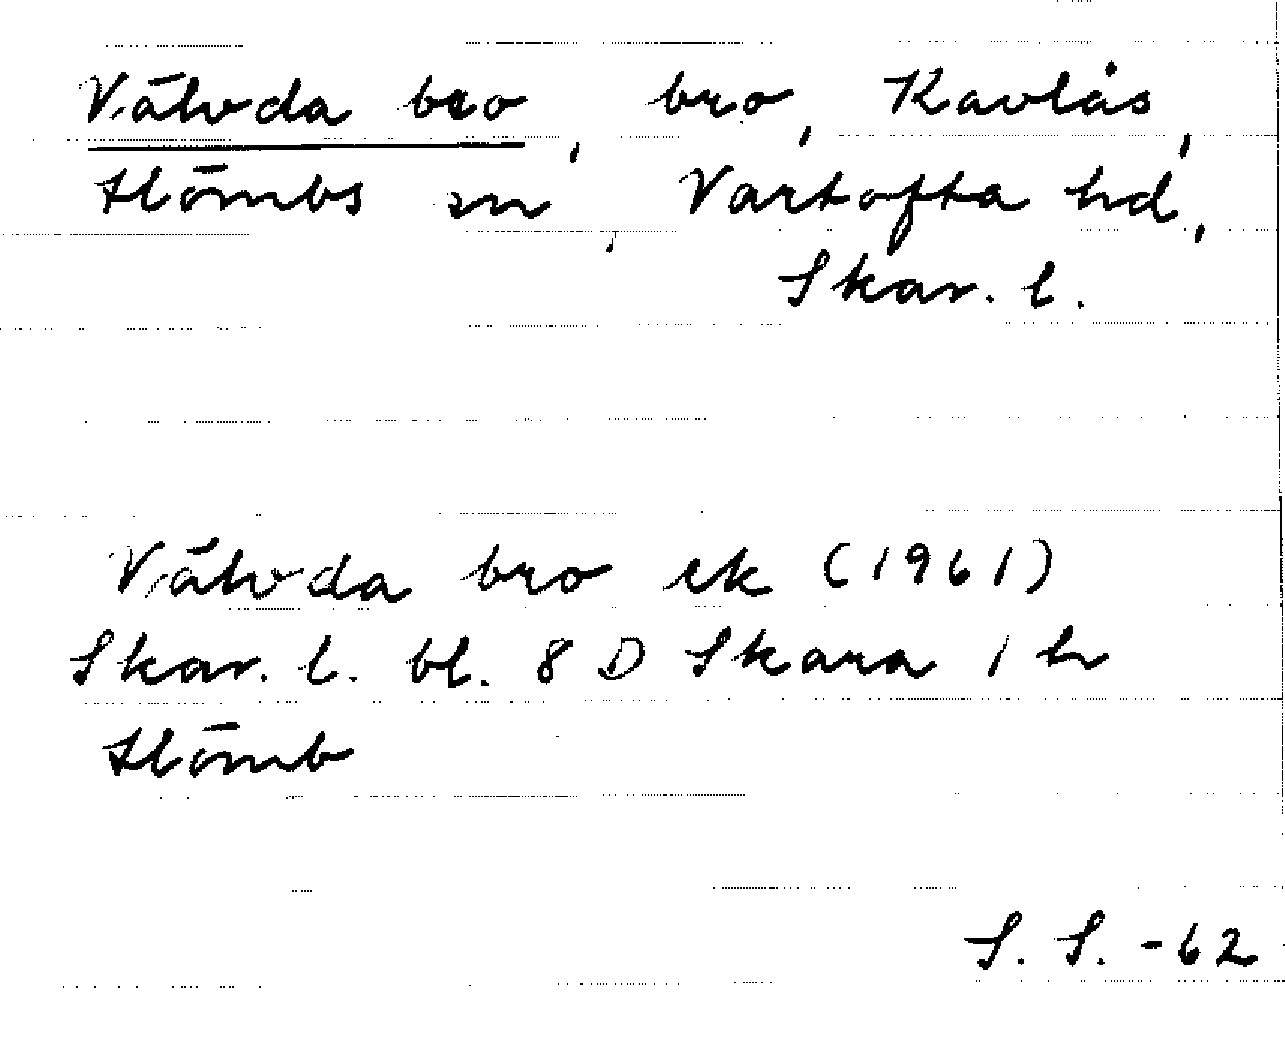 Välvda bro, bro, Kavlås,
Slömbs sn, Vartofta hd,
Skar. l.
Välvda bro ek (1961)
Skar. l. bl. 8 D Skara 1 h
Slömb
S. S. -62